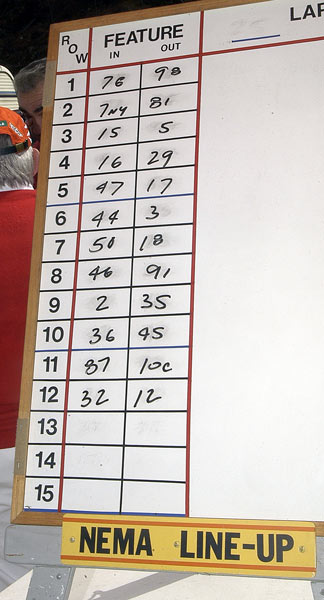 ROW FEATURE LAP
IN OUT
1 76 98
2 7NY 81
3 15 5
4 16 29
5 47 17
6 44 3
7 50 18
8 46 91
9 2 35
10 36 45
11 87 10c
12 32 12
13
14
15
NEMA LINE-UP